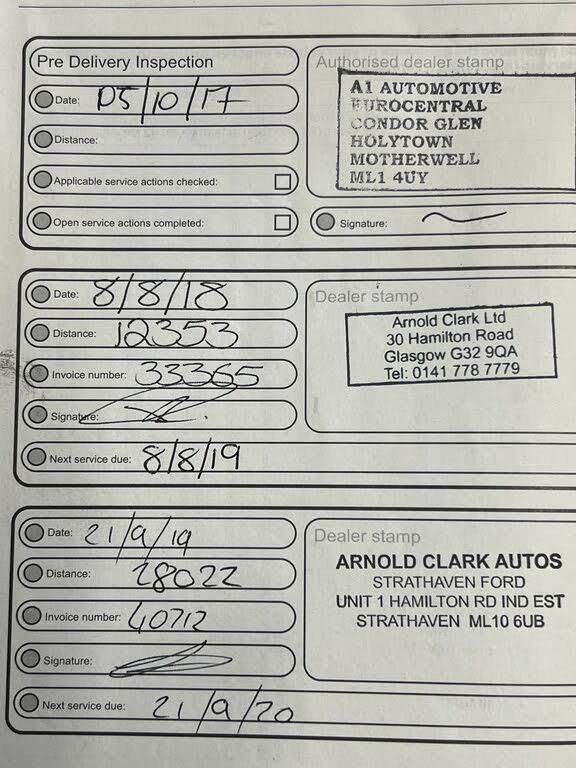 Pre Delivery Inspection
Date: 05/10/17
Distance:
Applicable service actions checked:
Open service actions completed:
Authorised dealer stamp
A1 AUTOMOTIVE
EUROCENTRAL
CONDOR GLEN
HOLYTOWN
MOTHERWELL
ML1 4UY
Signature:
Date: 8/8/18
Distance: 12353
Invoice number: 33365
Signature:
Next service due: 8/8/19
Dealer stamp
Arnold Clark Ltd
30 Hamilton Road
Glasgow G32 9QA
Tel: 0141 778 7779
Date: 21/9/19
Distance: 28022
Invoice number: 40712
Signature:
Next service due: 21/9/20
Dealer stamp
ARNOLD CLARK AUTOS
STRATHAVEN FORD
UNIT 1 HAMILTON RD IND EST
STRATHAVEN ML10 6UB